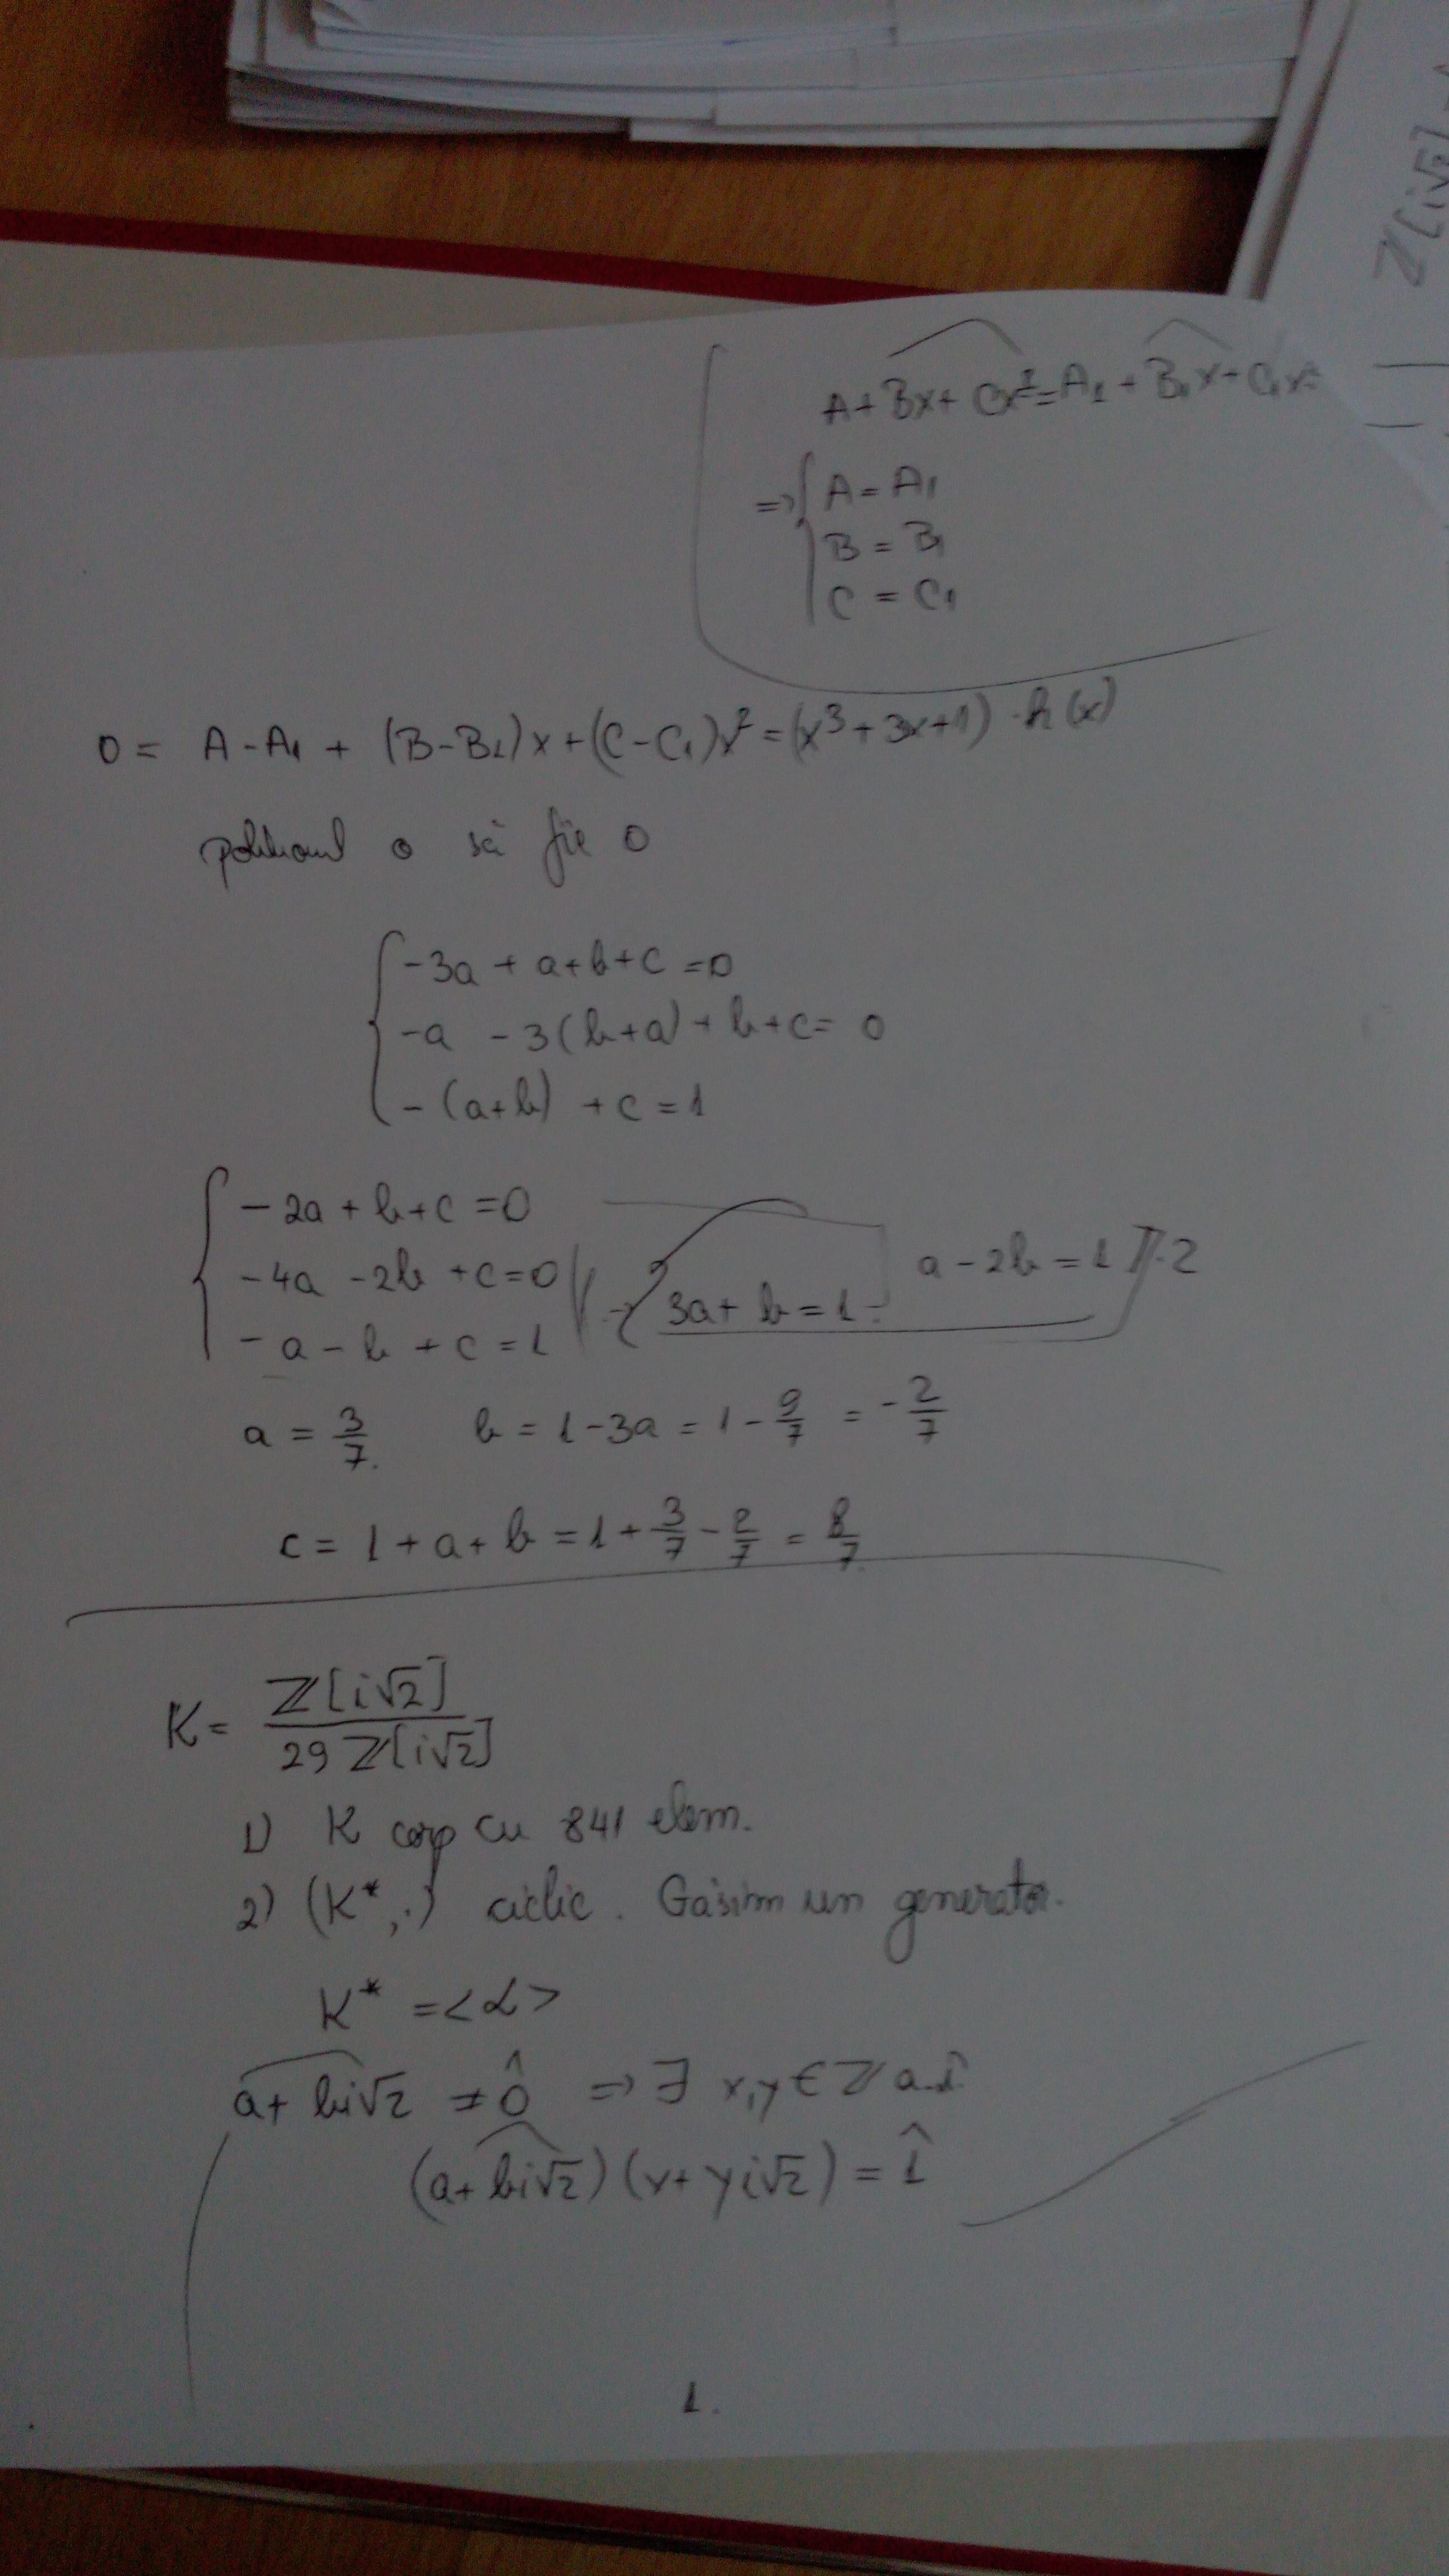 ℤ[i√2]
A+Bx+Cx²=A₁+B₁x+C₁x²
=> { A = A₁
B = B₁
C = C₁
0 = A-A₁ + (B-B₁)x+(C-C₁)x²=(x³+3x+1)·h(x)
polinomul o să fie 0
{ -3a + a+b+c =0
-a -3(b+a)+b+c= 0
-(a+b) +c =1
{ -2a+b+c =0
-4a -2b +c=0
-a-b +c =1
3a+ b=1
a-2b=1 | ·2
a = 3/7. b = 1-3a = 1-9/7 = -2/7
c = 1+a+b =1+3/7-2/7 = 8/7.
K= ℤ[i√2] / 29ℤ[i√2]
1) K corp cu 841 elem.
2) (K*,·) ciclic. Găsim un generator.
K* =<α>
a+bi√2 ≠ 0̂ => ∃ x,y∈ℤ a.î.
(a+bi√2)(x+yi√2) = 1̂
1.